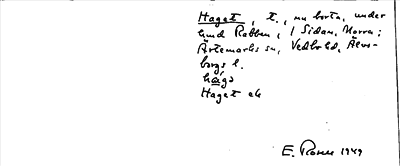 Haget, t., nu borta, under
lund Rabben, i Sidan, Norra;
Ärtemarks sn, Vedbo hd, Älvs-
borgs l.
hāgə
Haget ek
E. Rosell 1949